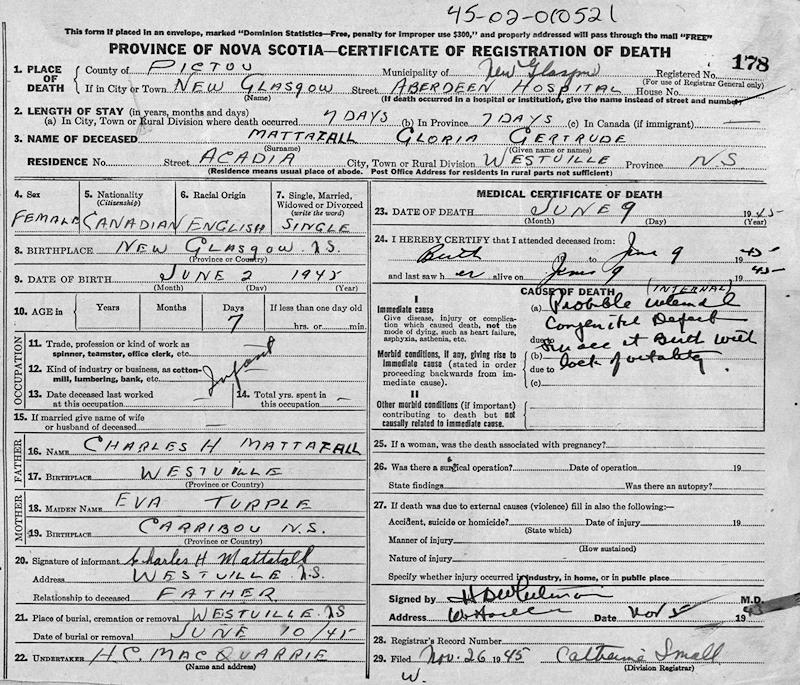 45-02-010521
This form if placed in an envelope, marked "Dominion Statistics—Free, penalty for improper use $300," and properly addressed will pass through the mail "FREE"
PROVINCE OF NOVA SCOTIA—CERTIFICATE OF REGISTRATION OF DEATH
178
1. PLACE OF DEATH County of PICTOU Municipality of New Glasgow Registered No.
(For use of Registrar General only)
If in City or Town NEW GLASGOW Street ABERDEEN HOSPITAL House No.
(Name) (If death occurred in a hospital or institution, give the name instead of street and number)
2. LENGTH OF STAY (in years, months and days)
(a) In City, Town or Rural Division where death occurred 7 DAYS (b) In Province 7 DAYS (c) In Canada (if immigrant) —
3. NAME OF DECEASED MATTATALL GLORIA GERTRUDE
(Surname) (Given name or names)
RESIDENCE No. Street ACADIA City, Town or Rural Division WESTVILLE Province N S
(Residence means usual place of abode. Post Office Address for residents in rural parts not sufficient)
4. Sex
FEMALE
5. Nationality
(Citizenship)
CANADIAN
6. Racial Origin
ENGLISH
7. Single, Married,
Widowed or Divorced
(write the word)
SINGLE
8. BIRTHPLACE NEW GLASGOW N.S.
(Province or Country)
9. DATE OF BIRTH JUNE 2 1945
(Month) (Day) (Year)
10. AGE in Years Months Days If less than one day old
7 hrs. or min.
OCCUPATION
11. Trade, profession or kind of work as
spinner, teamster, office clerk, etc.
Infant
12. Kind of industry or business, as cotton-
mill, lumbering, bank, etc.
13. Date deceased last worked
at this occupation —
14. Total yrs. spent in
this occupation —
15. If married give name of wife
or husband of deceased —
FATHER
16. NAME CHARLES H MATTATALL
17. BIRTHPLACE WESTVILLE
(Province or Country)
MOTHER
18. MAIDEN NAME EVA TURPLE
19. BIRTHPLACE CARRIBOU N.S.
(Province or Country)
20. Signature of informant Charles H Mattatall
Address WESTVILLE N.S
Relationship to deceased FATHER
21. Place of burial, cremation or removal WESTVILLE N S
Date of burial or removal JUNE 10/45
22. UNDERTAKER H.C. MACQUARRIE
(Name and address)
MEDICAL CERTIFICATE OF DEATH
23. DATE OF DEATH JUNE 9 1945
(Month) (Day) (Year)
24. I HEREBY CERTIFY that I attended deceased from:
Birth to June 9 1945
and last saw her alive on June 9 1945
CAUSE OF DEATH (INTERNAL)
I
Immediate cause
Give disease, injury or complica-
tion which caused death, not the
mode of dying, such as heart failure,
asphyxia, asthenia, etc.
(a) Probable
Congenital Defect
due to at Birth with
Morbid conditions, if any, giving rise to
immediate cause (stated in order
proceeding backwards from im-
mediate cause).
(b) lack of vitality
due to
(c)
II
Other morbid conditions (if important)
contributing to death but not
causally related to immediate cause.
25. If a woman, was the death associated with pregnancy?
26. Was there a surgical operation? Date of operation 19
State findings Was there an autopsy?
27. If death was due to external causes (violence) fill in also the following:—
Accident, suicide or homicide? Date of injury 19
(State which)
Manner of injury
(How sustained)
Nature of injury
Specify whether injury occurred in industry, in home, or in public place
Signed by M.D.
Address Date Nov 5 1945
28. Registrar's Record Number
29. Filed Nov. 26 1945 Catherine Small
(Division Registrar)
W.